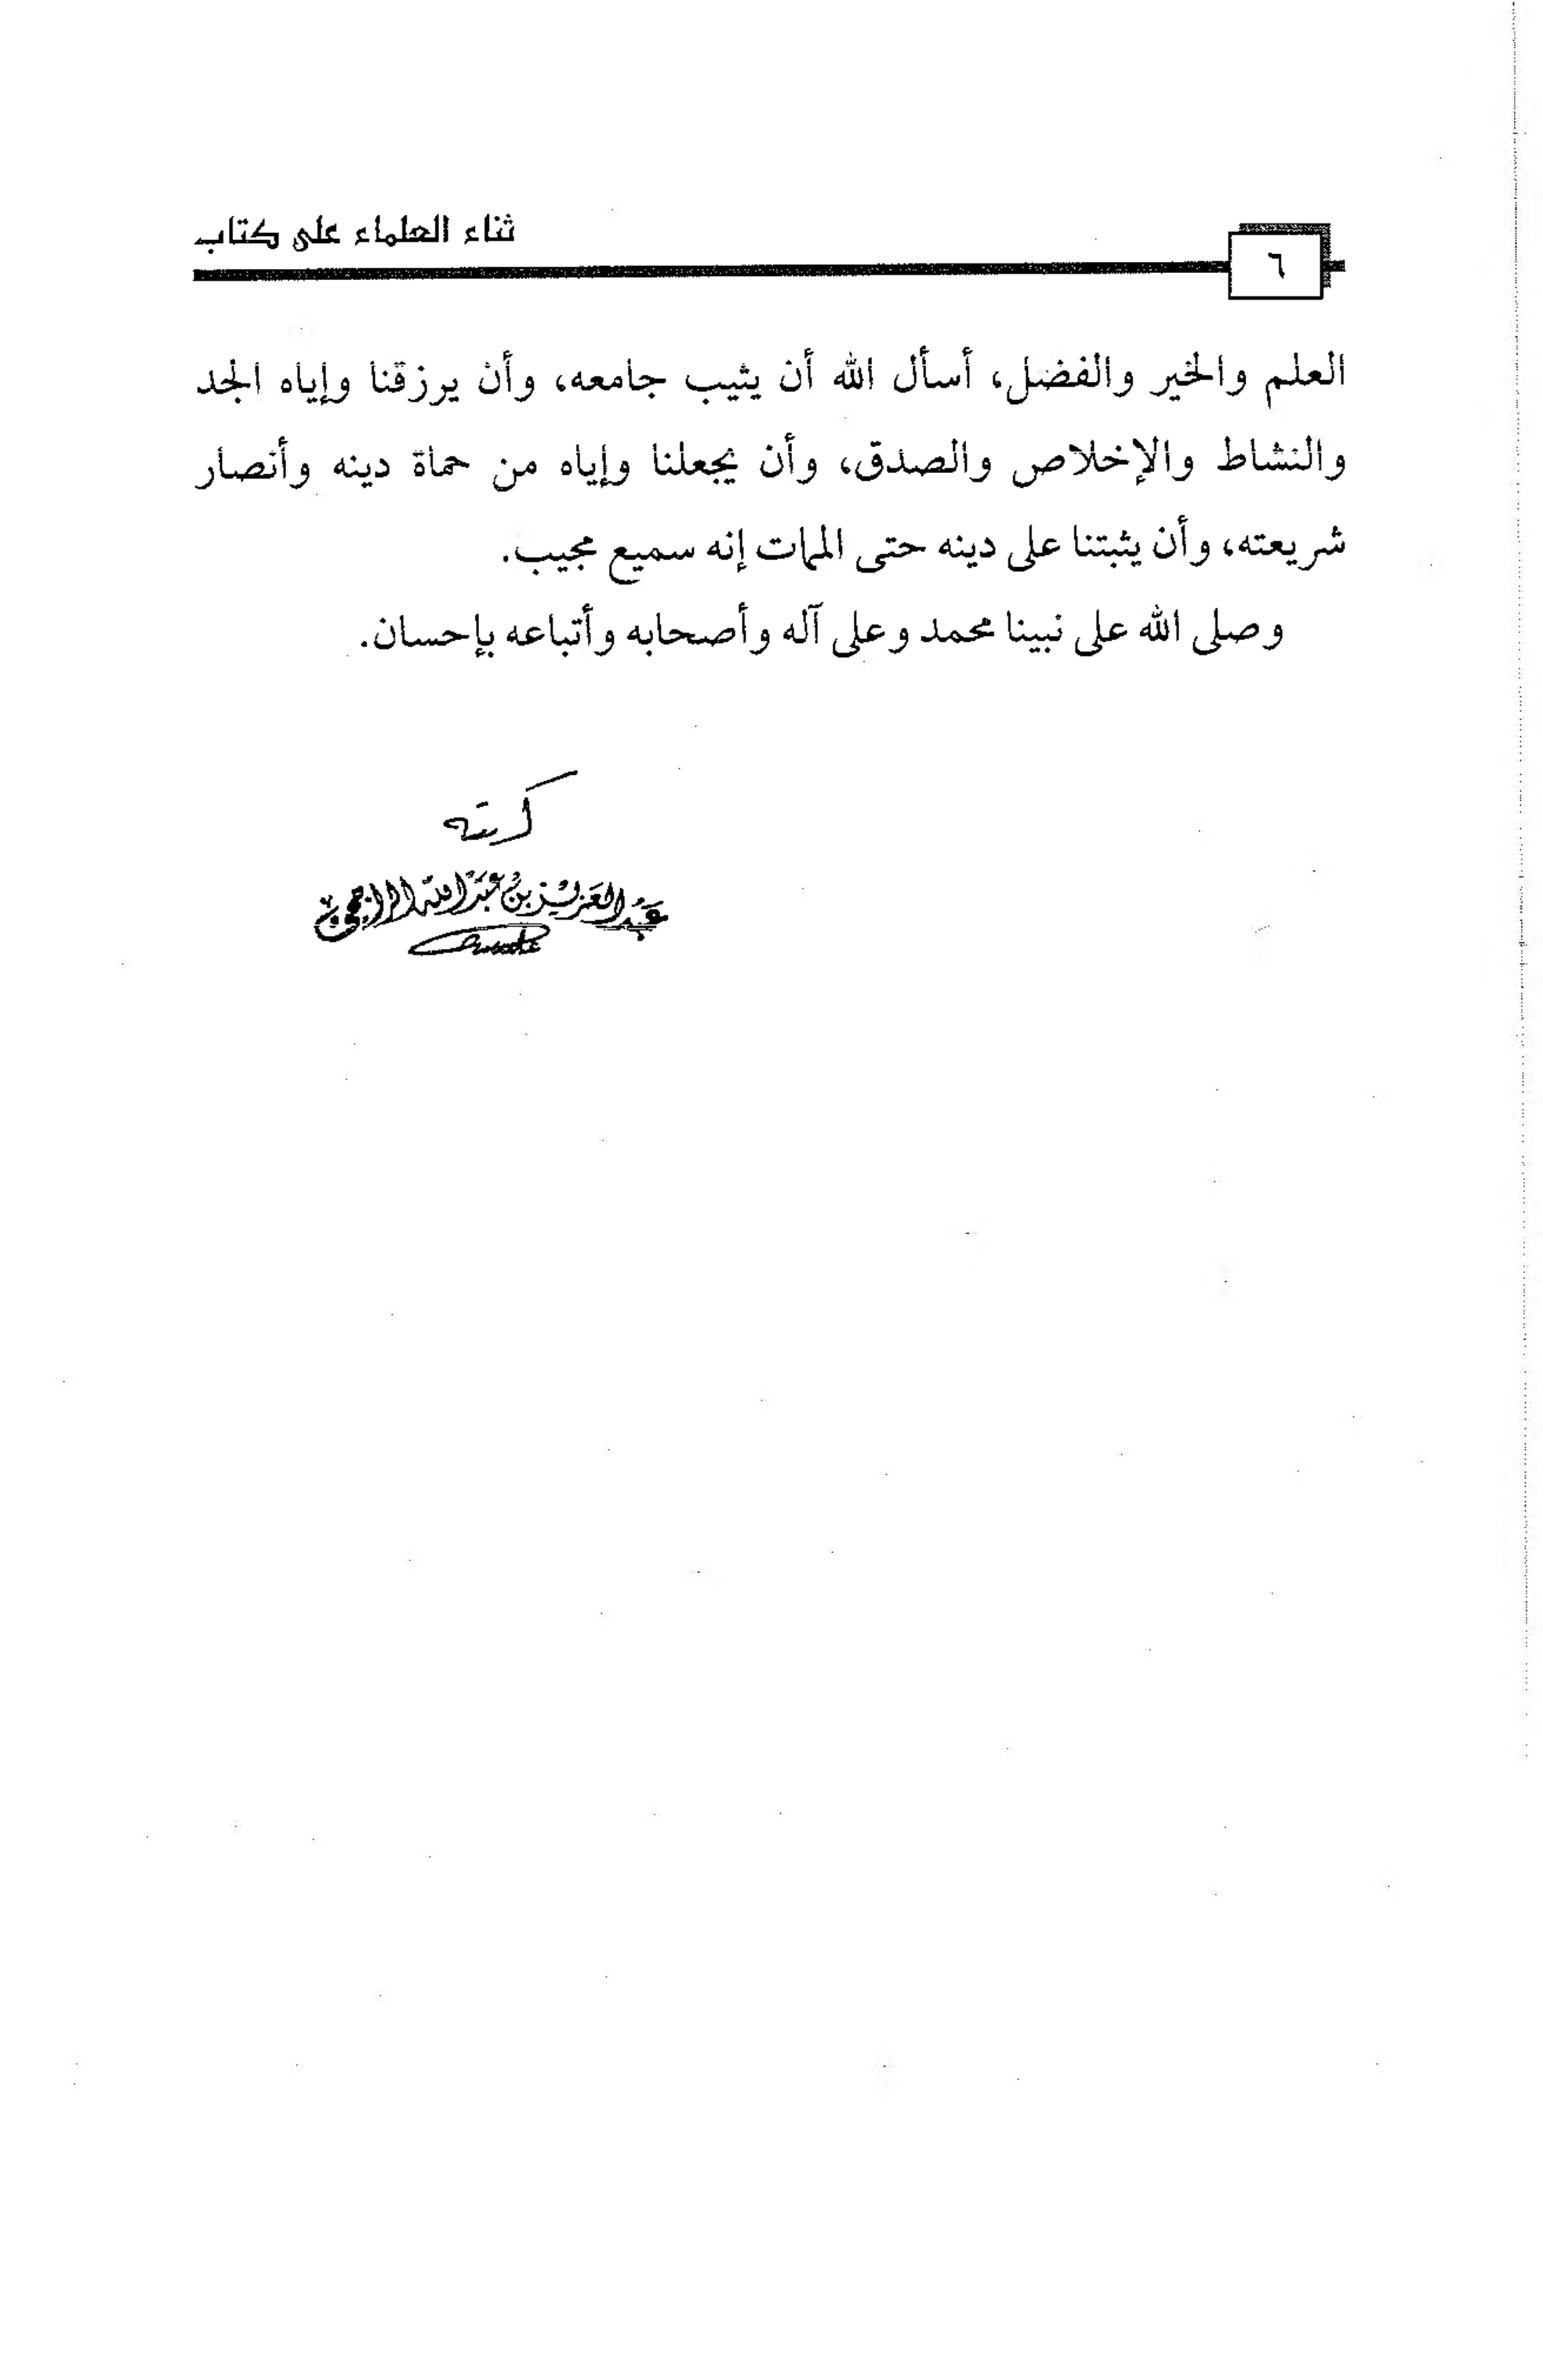 ٦
ثناء العلماء على كتاب
العلم والخير والفضل، أسأل الله أن يثيب جامعه، وأن يرزقنا وإياه الجد
والنشاط والإخلاص والصدق، وأن يجعلنا وإياه من حماة دينه وأنصار
شريعته، وأن يثبتنا على دينه حتى الممات إنه سميع مجيب.
وصلى الله على نبينا محمد وعلى آله وأصحابه وأتباعه بإحسان.
كتبه
عبد العزيز بن عبد الله الراجحي